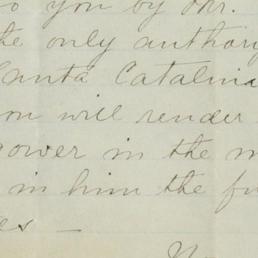 to you by Mr.
the only author
Santa Catalina
you will render
power in the m
in him the fu
es —